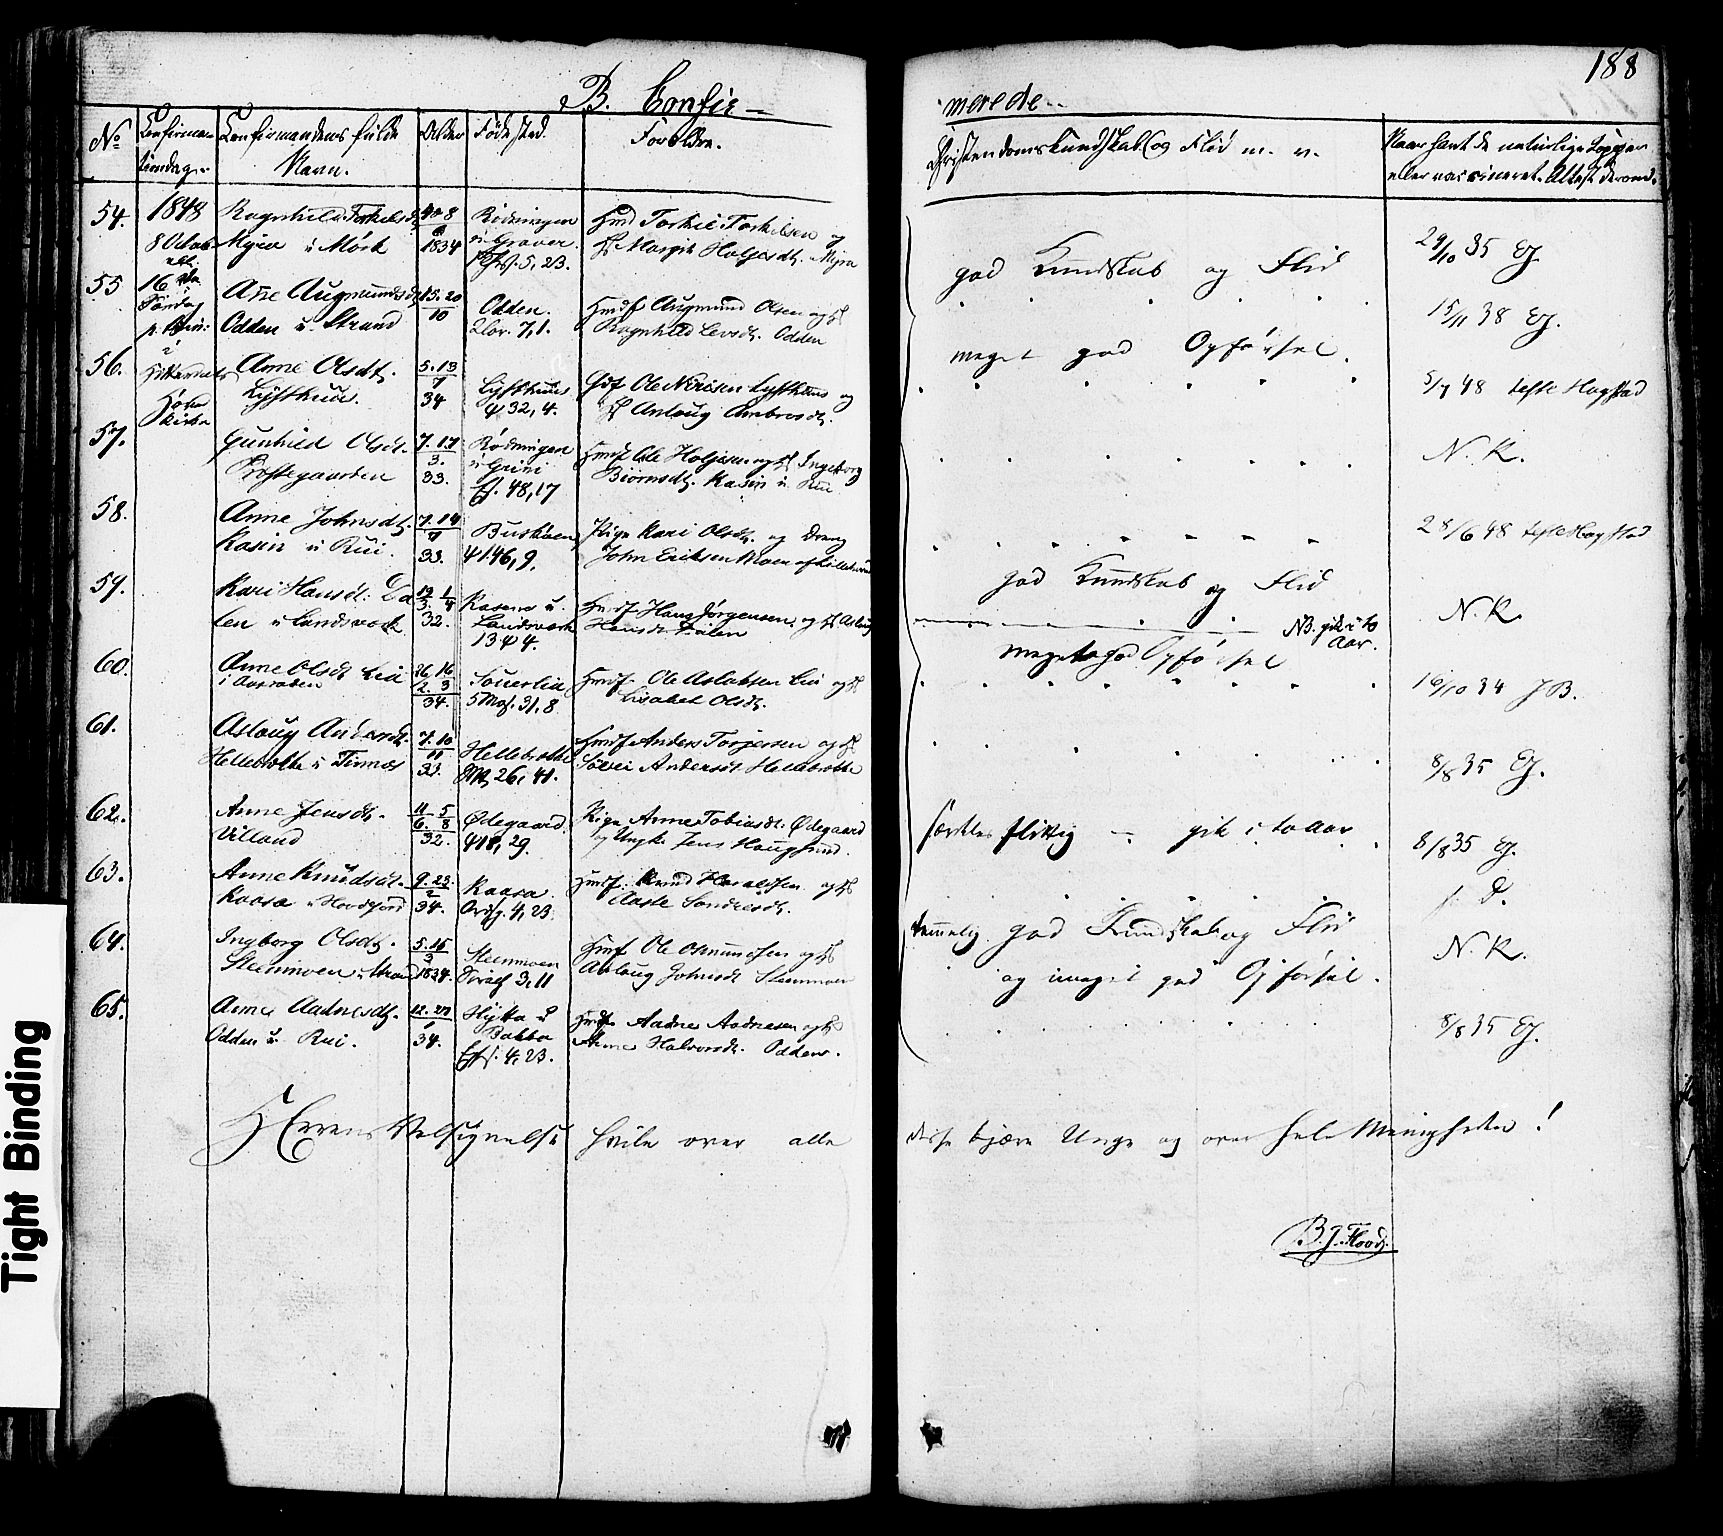 188
B. Confir-
merede
No
Confirma-
tionsdag.
Confirmandens fulde
Navn.
Alder
Fødested.
Forældre.
Christendomskundskab og Flid m. v.
Naar havt de naturlige Kopper
eller vaccineret. Attest derom.
54.
1848
8 Octob
16 Søndag
Hitterdals
Kirke
Ragnhild Torkilsdt
Myra u Mørk
1834
Rodningen
u Graver.
5, 23.
Torkil Torkilsen og
Margit Holjesdt. Myra
god Kundskab og Flid
29/10 35 EJ.
55
Aase Augmundsdt
Odden u. Strand
15. 20
10
Odden.
2 Cor. 7,1.
Augmund Olsen og
Ragnhild Levsdt. Odden
meget god Opførsel.
15/11 38 EJ.
56.
Anne Olsdt.
Lysthuus.
5. 13
7
34
Lysthuus
ψ 32, 4.
Ole Nirisen Lysthuus og
Anlaug Ambrosdt.
5/7 48 teste Hogstad
57.
Gunhild Olsdt.
Prestegaarden
7. 17
3.
33.
Rodningen
u Grini
48, 17
Ole Holjesen og Ingeborg
Biørnsdt. Kasin u. Rui
N. K.
58.
Anne Johnsdt.
Kasin u Rui.
7. 14
7
33.
Buskåsen
ψ 146, 9.
Pige Kari Olsdt. og Dreng
John Eriksen Moen af Lilleherred
28/6 48 teste Hogstad
59.
Kari Hansdt. Da
len u Landsverk
12 1
3. 4
32.
Kasene u.
Landsverk
13 ψ 4.
Hans Jørgensen og Aslaug
Hansdt Dalen
god Kundskab og Flid
NB. gik i to
Aar.
meget god Opførsel
N. K.
60.
Anne Olsdt Lia
26 16
2. 3
34.
Sauerlia
5 Mos. 31. 8.
Ole Aslaksen Lia og
Lisabet Olsdt.
16/10 34 JB.
61.
Aslaug Andersdt.
Hellebrotte u Tinnes
7. 10
11
33.
Hellebrotte
Mt. 26, 41.
Anders Torjersen og
Sølvei Andersdt Hellebrotte
8/8 35 EJ.
62.
Anne Jensdt.
Villand
11 5
6. 8
32.
Ødegaard
ψ 18, 29.
Pige Anne Tobiasdt. Ødegaard
og Ungk. Jens Haugsund.
særdeles flittig - gik i to Aar
8/8 35 EJ.
63.
Anne Knudsdt.
Kaasa u Nordfjord
9. 23.
2
34.
Kaasa
Ordsp. 4, 23.
Knud Haraldsen og
Aaste Sondresdt.
s. D.
64.
Ingborg Olsdt.
Steenmoen u. Strand
5. 15
3
1834.
Steenmoen
3, 11
Ole Osmundsen og
Anlaug Johnsdt Steenmoen
temmelig god Kundskab og Flid
og meget god Opførsel.
N. K.
65.
Anne Aadnesdt.
Odden u. Rui.
12. 27
1
34.
Hytta u
Bakka
4, 23.
Aadne Aadnesen og
Anne Halvorsdt. Odden.
8/8 35 EJ.
HErrens Velsignelse hvile over alle
disse kjære Unge og over hele Menigheden!
B. J. Flood.
Tight Binding